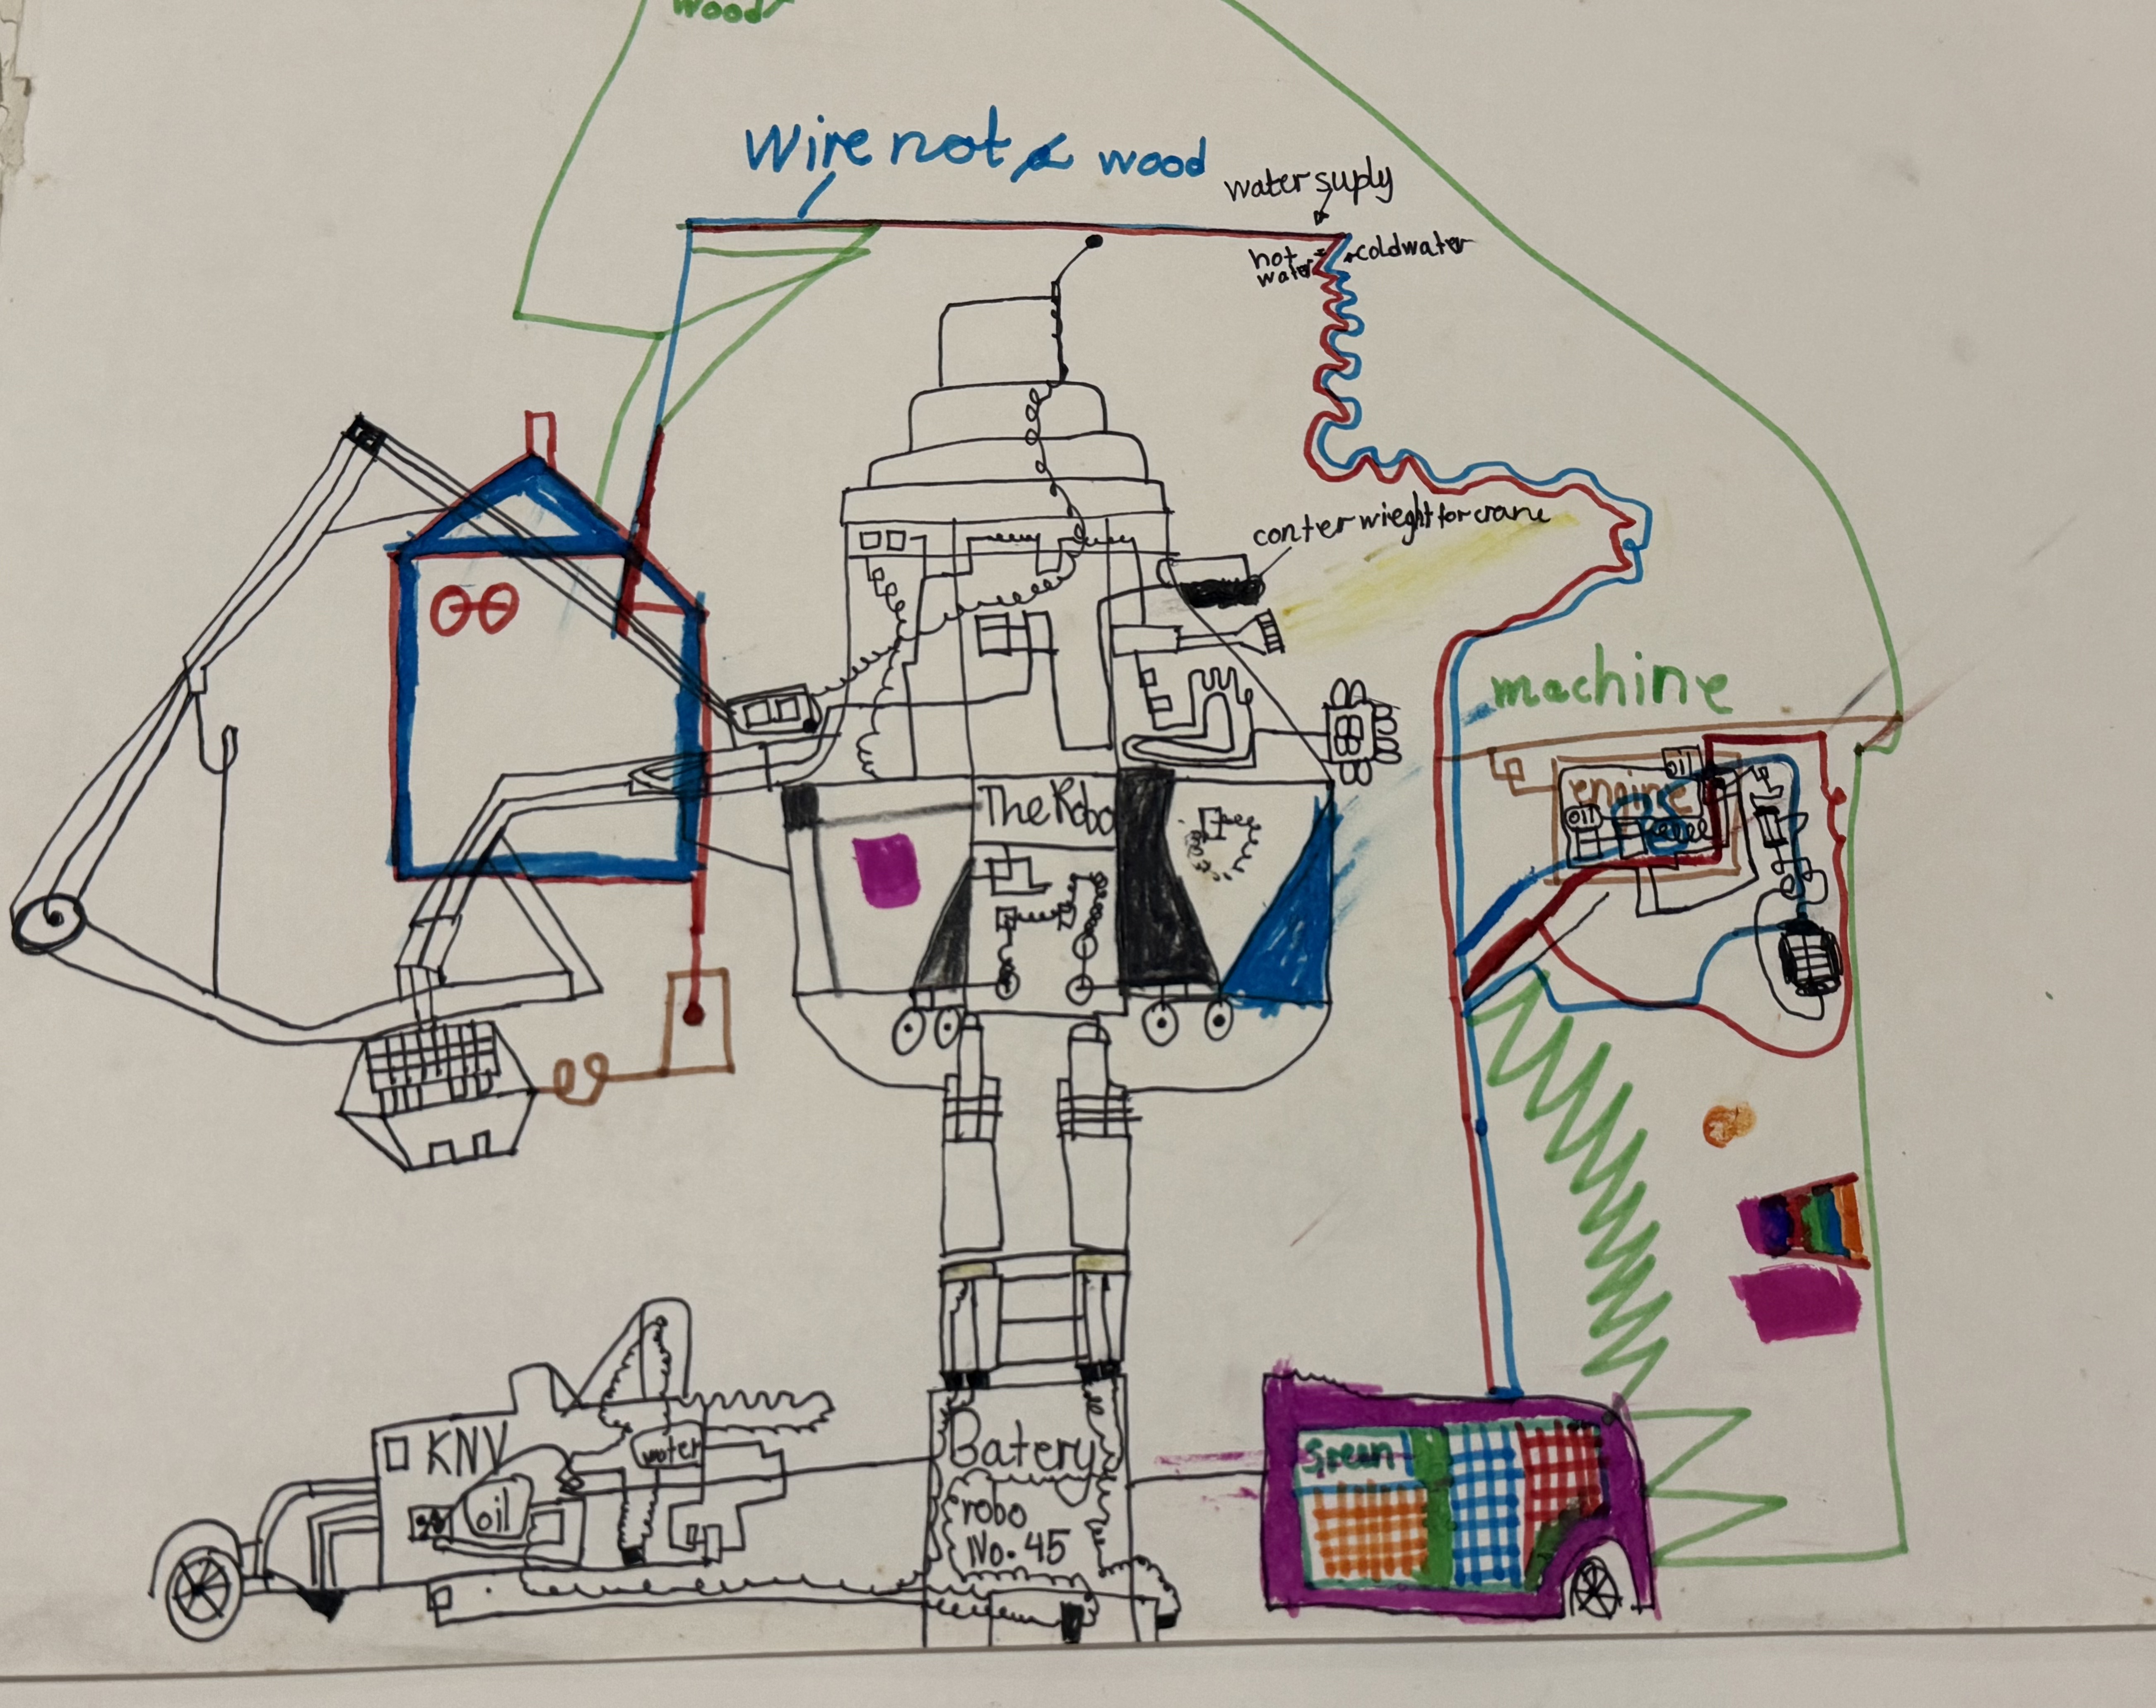 wood
Wire not a wood
water suply
hot
water
coldwater
conter wieght for crane
machine
oil
engine
oil
The Robo
KNV
water
oil
Batery
robo
No. 45
Green